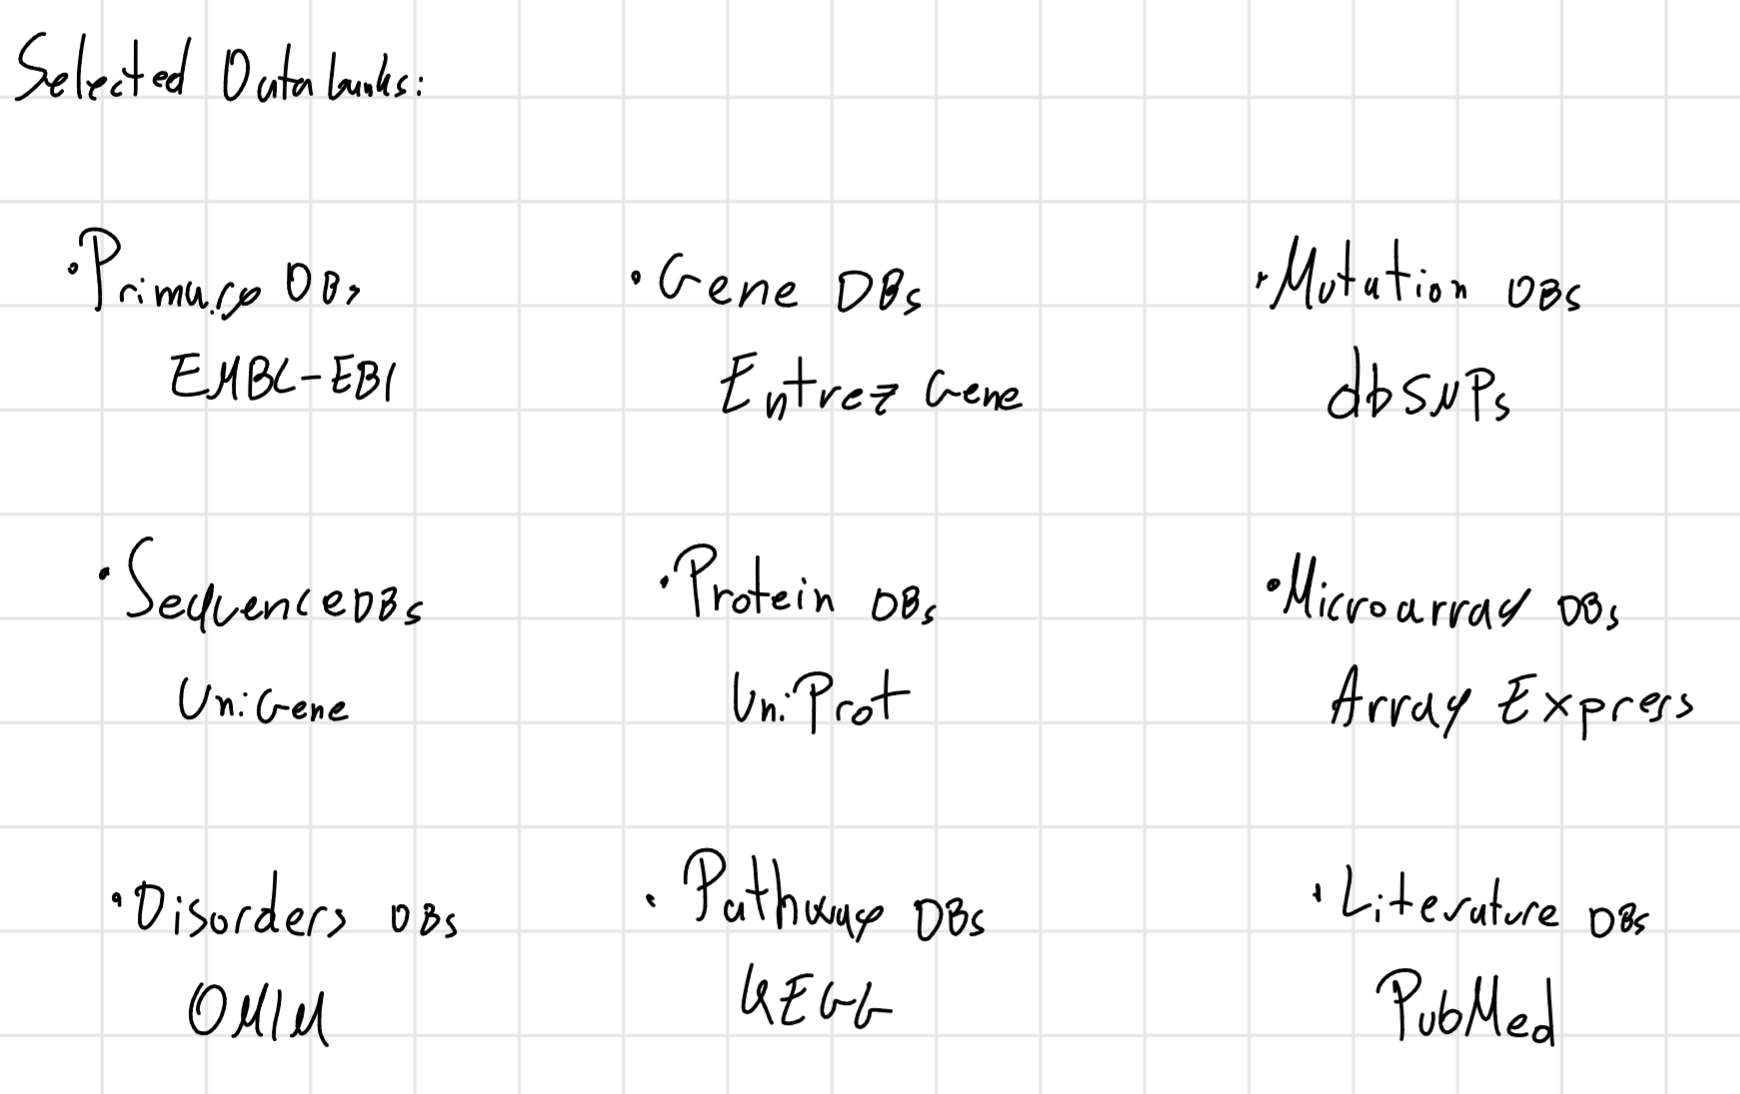 Selected Databanks:
• Primary DBs
EMBL-EBI
• Gene DBs
Entrez Gene
• Mutation DBs
dbSNPs
• Sequence DBs
UniGene
• Protein DBs
UniProt
• Microarray DBs
Array Express
• Disorders DBs
OMIM
• Pathway DBs
KEGG
• Literature DBs
PubMed